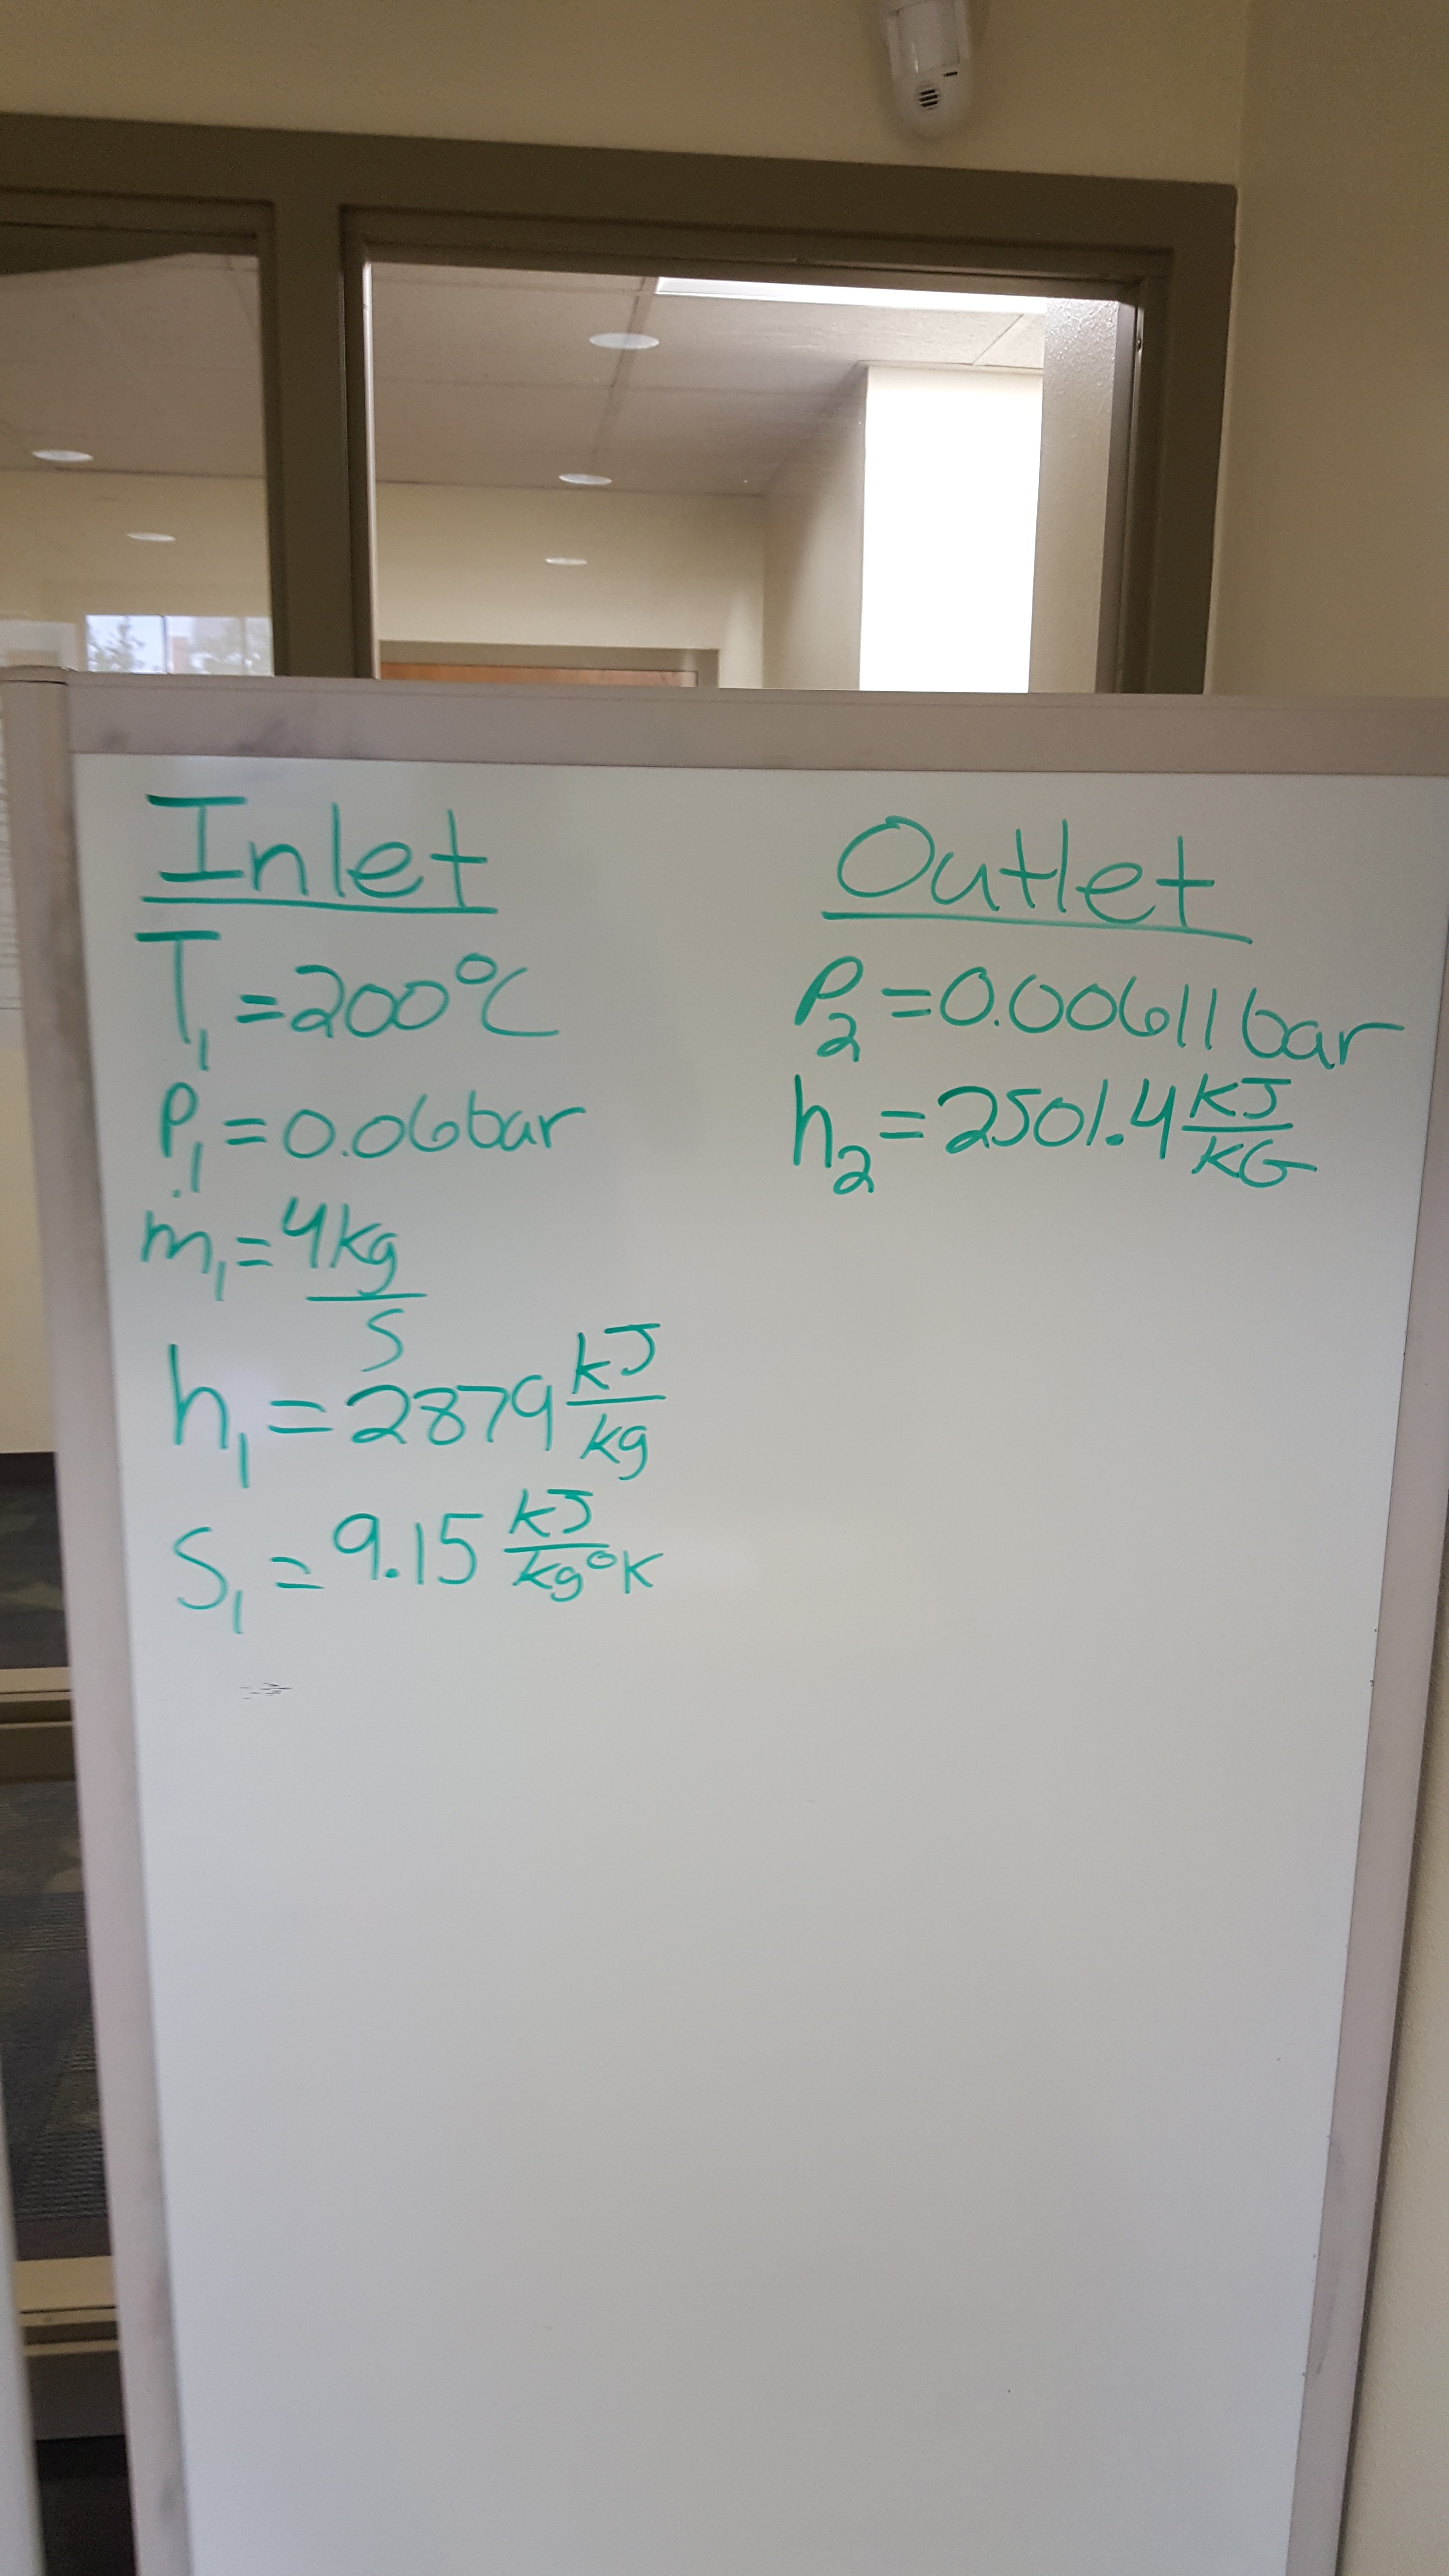 Inlet
T₁ = 200°C
P₁ = 0.06bar
ṁ₁ = 4kg/s
h₁ = 2879 kJ/kg
S₁ = 9.15 kJ/kg°K
Outlet
P₂ = 0.00611 bar
h₂ = 2501.4 kJ/KG